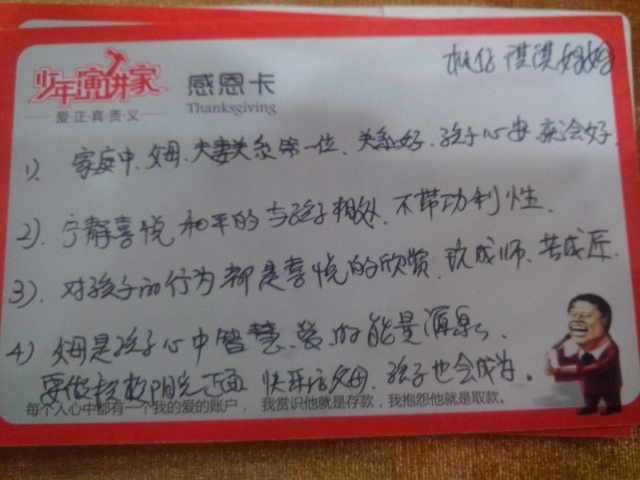 少年演讲家
爱·正·真·责·义
感恩卡
Thanksgiving
淇淇妈妈
1)、家庭中、父母、夫妻关系第一位、关系好、孩子心安就会好
2)、宁静喜悦和平的与孩子相处、不带功利性、
3)、对孩子的行为都是喜悦的欣赏、玩成师、苦成匠、
4)、父母是孩子心中智慧、爱的能量源泉、
要做积极阳光正面快乐的父母、孩子也会成为。
每个人心中都有一个我的爱的账户，我赏识他就是存款，我抱怨他就是取款。